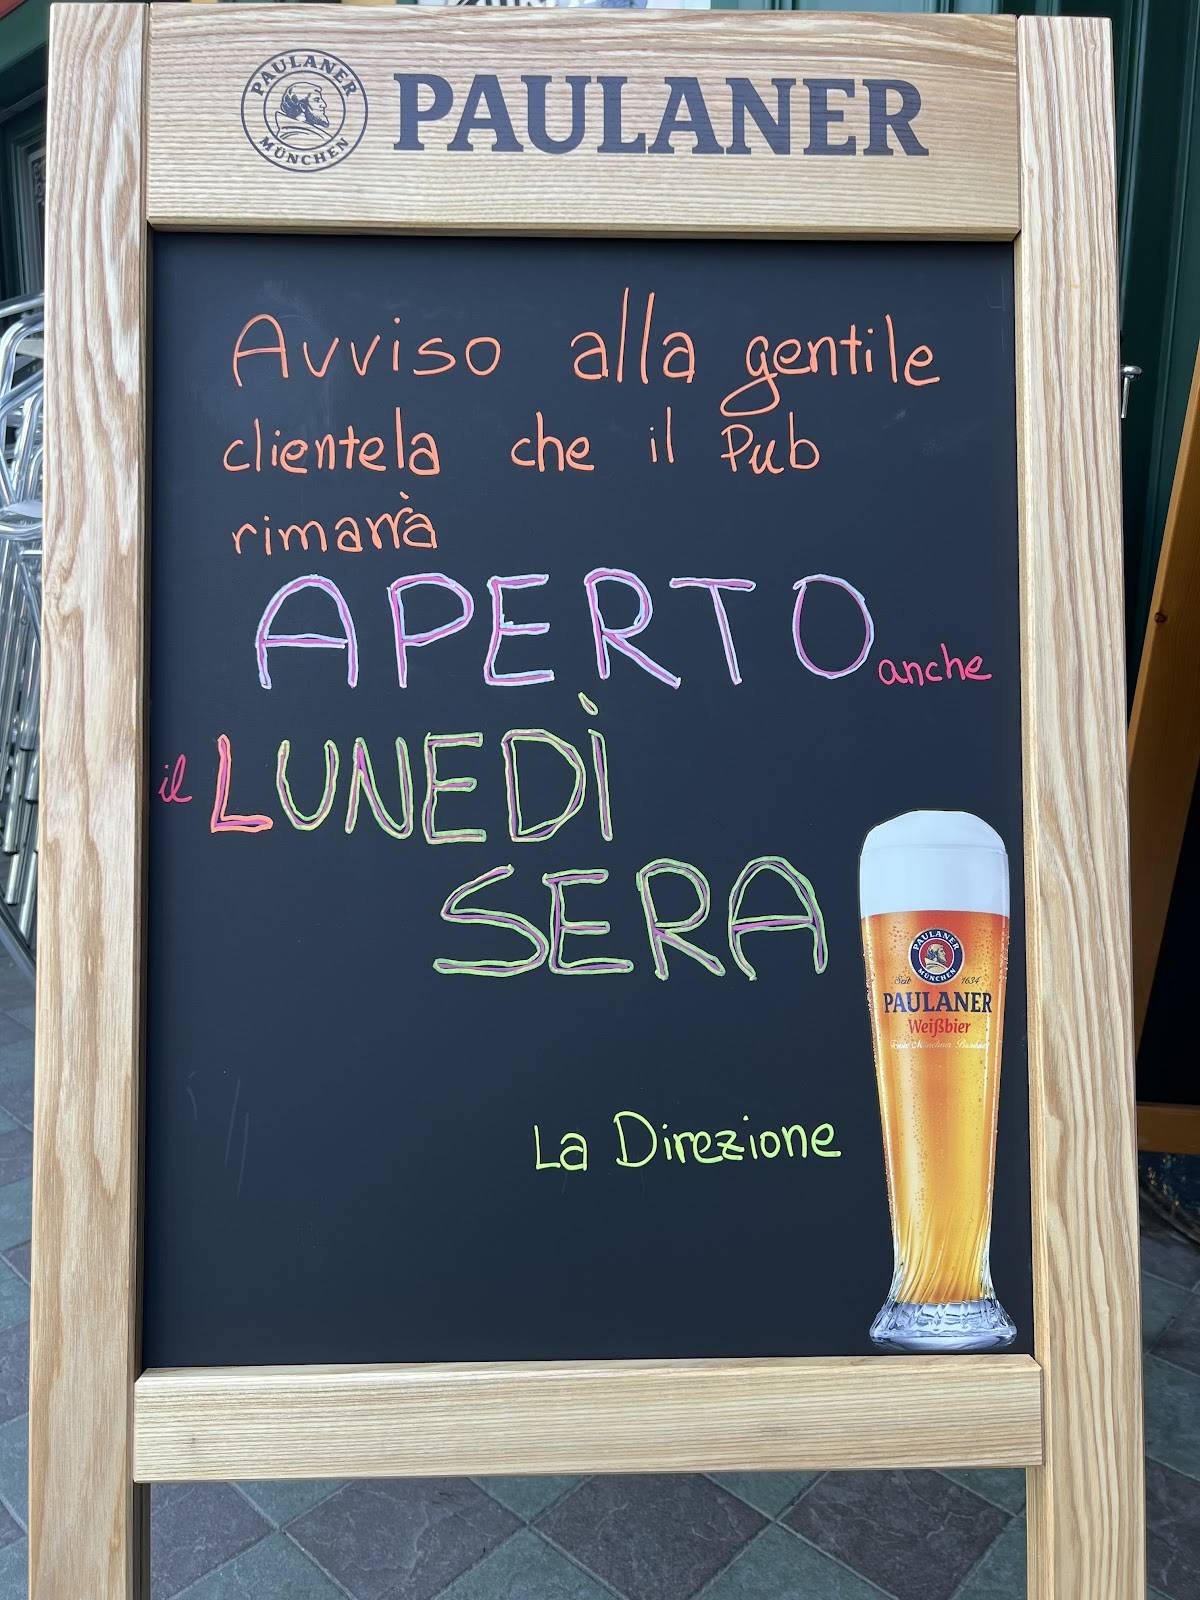 PAULANER
MÜNCHEN
PAULANER
Avviso alla gentile
clientela che il Pub
rimarrà
APERTO anche
il LUNEDÌ
SERA
PAULANER
MÜNCHEN
Seit 1634
PAULANER
Weißbier
La Direzione